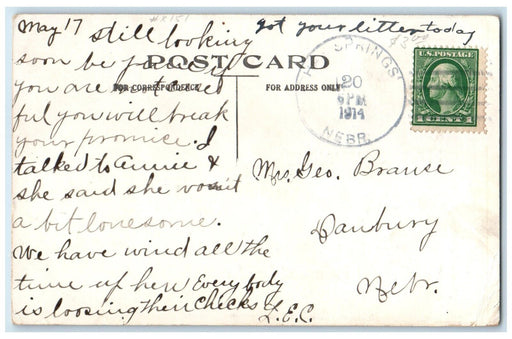 May 17 still looking
got your litter today
soon be
you are
ful you will break
your promice. I
talked to annie &
she said she
a bit lonesome.
We have wind all the
time up her Every body
is loosing their chicks
L.E.C.
POST CARD
FOR CORRESPONDENCE
FOR ADDRESS ONLY
SPRINGS
20
6 PM
1914
NEBR.
U.S. POSTAGE
1 CENT 1
Mrs. Geo. Brause
Danbury
Nebr.